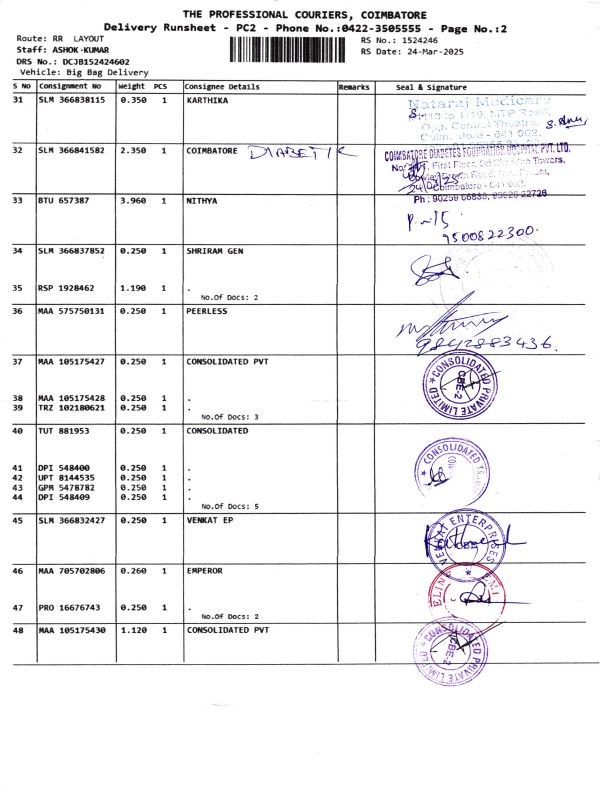 THE PROFESSIONAL COURIERS, COIMBATORE
Delivery Runsheet - PC2 - Phone No.:0422-3505555 - Page No.:2
Route: RR LAYOUT
RS No.: 1524246
Staff: ASHOK-KUMAR
RS Date: 24-Mar-2025
DRS No.: DCJB152424602
Vehicle: Big Bag Delivery
S No Consignment No Weight PCS Consignee Details Remarks Seal & Signature
31 SLM 366838115 0.350 1 KARTHIKA
Nataraj Medicare
32 SLM 366841582 2.350 1 COIMBATORE DIABETIC
COIMBATORE DIABETES FOUNDATION HOSPITAL PVT. LTD.
Coimbatore
33 BTU 657387 3.960 1 NITHYA
9500822300
34 SLM 366837852 0.250 1 SHRIRAM GEN
35 RSP 1928462 1.190 1 .
No.Of Docs: 2
36 MAA 575750131 0.250 1 PEERLESS
9842883436
37 MAA 105175427 0.250 1 CONSOLIDATED PVT
CONSOLIDATED PRIVATE LIMITED
CBE-2
38 MAA 105175428 0.250 1 .
39 TRZ 102180621 0.250 1 .
No.Of Docs: 3
40 TUT 881953 0.250 1 CONSOLIDATED
CONSOLIDATED
41 DPI 548400 0.250 1 .
42 UPT 8144535 0.250 1 .
43 GPM 5478782 0.250 1 .
44 DPI 548409 0.250 1 .
No.Of Docs: 5
45 SLM 366832427 0.250 1 VENKAT EP
VENKAT ENTERPRISES
CBE
46 MAA 705702806 0.260 1 EMPEROR
47 PRO 16676743 0.250 1 .
No.Of Docs: 2
48 MAA 105175430 1.120 1 CONSOLIDATED PVT
CONSOLIDATED PRIVATE LIMITED
CBE-2